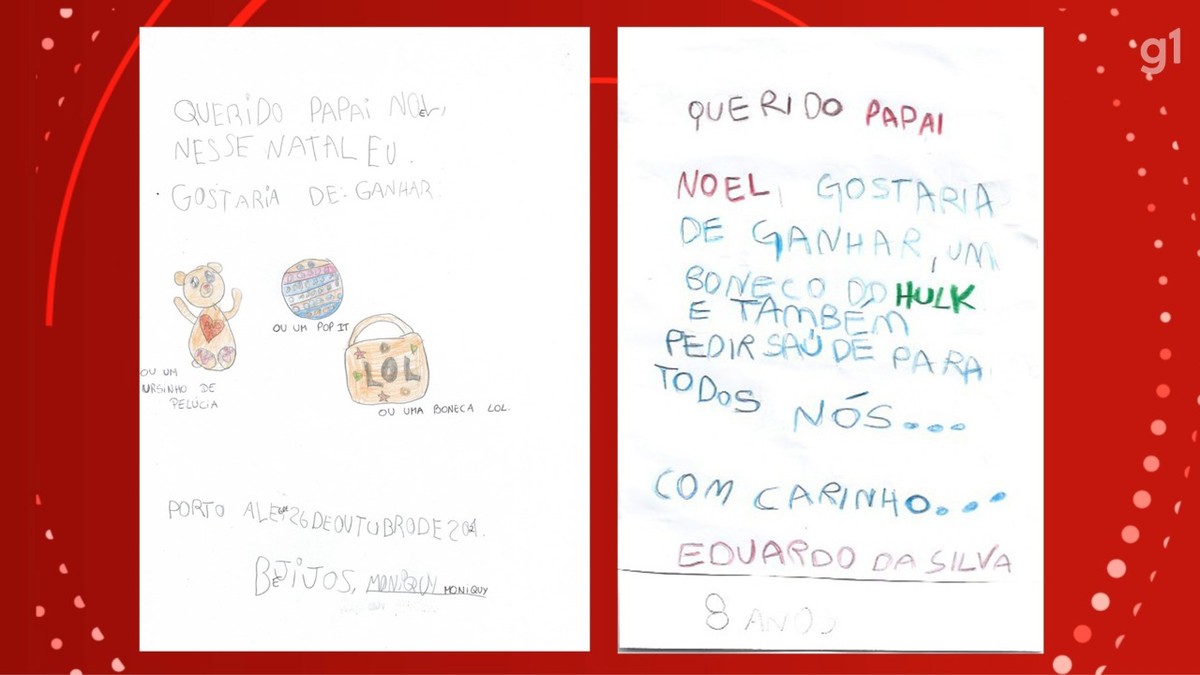 QUERIDO PAPAI NOEL,
NESSE NATAL EU.
GOSTARIA DE: GANHAR:
OU UM
URSINHO DE
PELÚCIA
OU UM POP IT
LOL
OU UMA BONECA LOL.
PORTO ALE 26 DE OUTUBRO DE
BEIJOS, MONIQUY MONIQUY
QUERIDO PAPAI
NOEL, GOSTARIA
DE GANHAR, UM
BONECO DO HULK
E TAMBÉM
PEDIR SAÚDE PARA
TODOS NÓS...
COM CARINHO...
EDUARDO DA SILVA
8 ANOS
g1